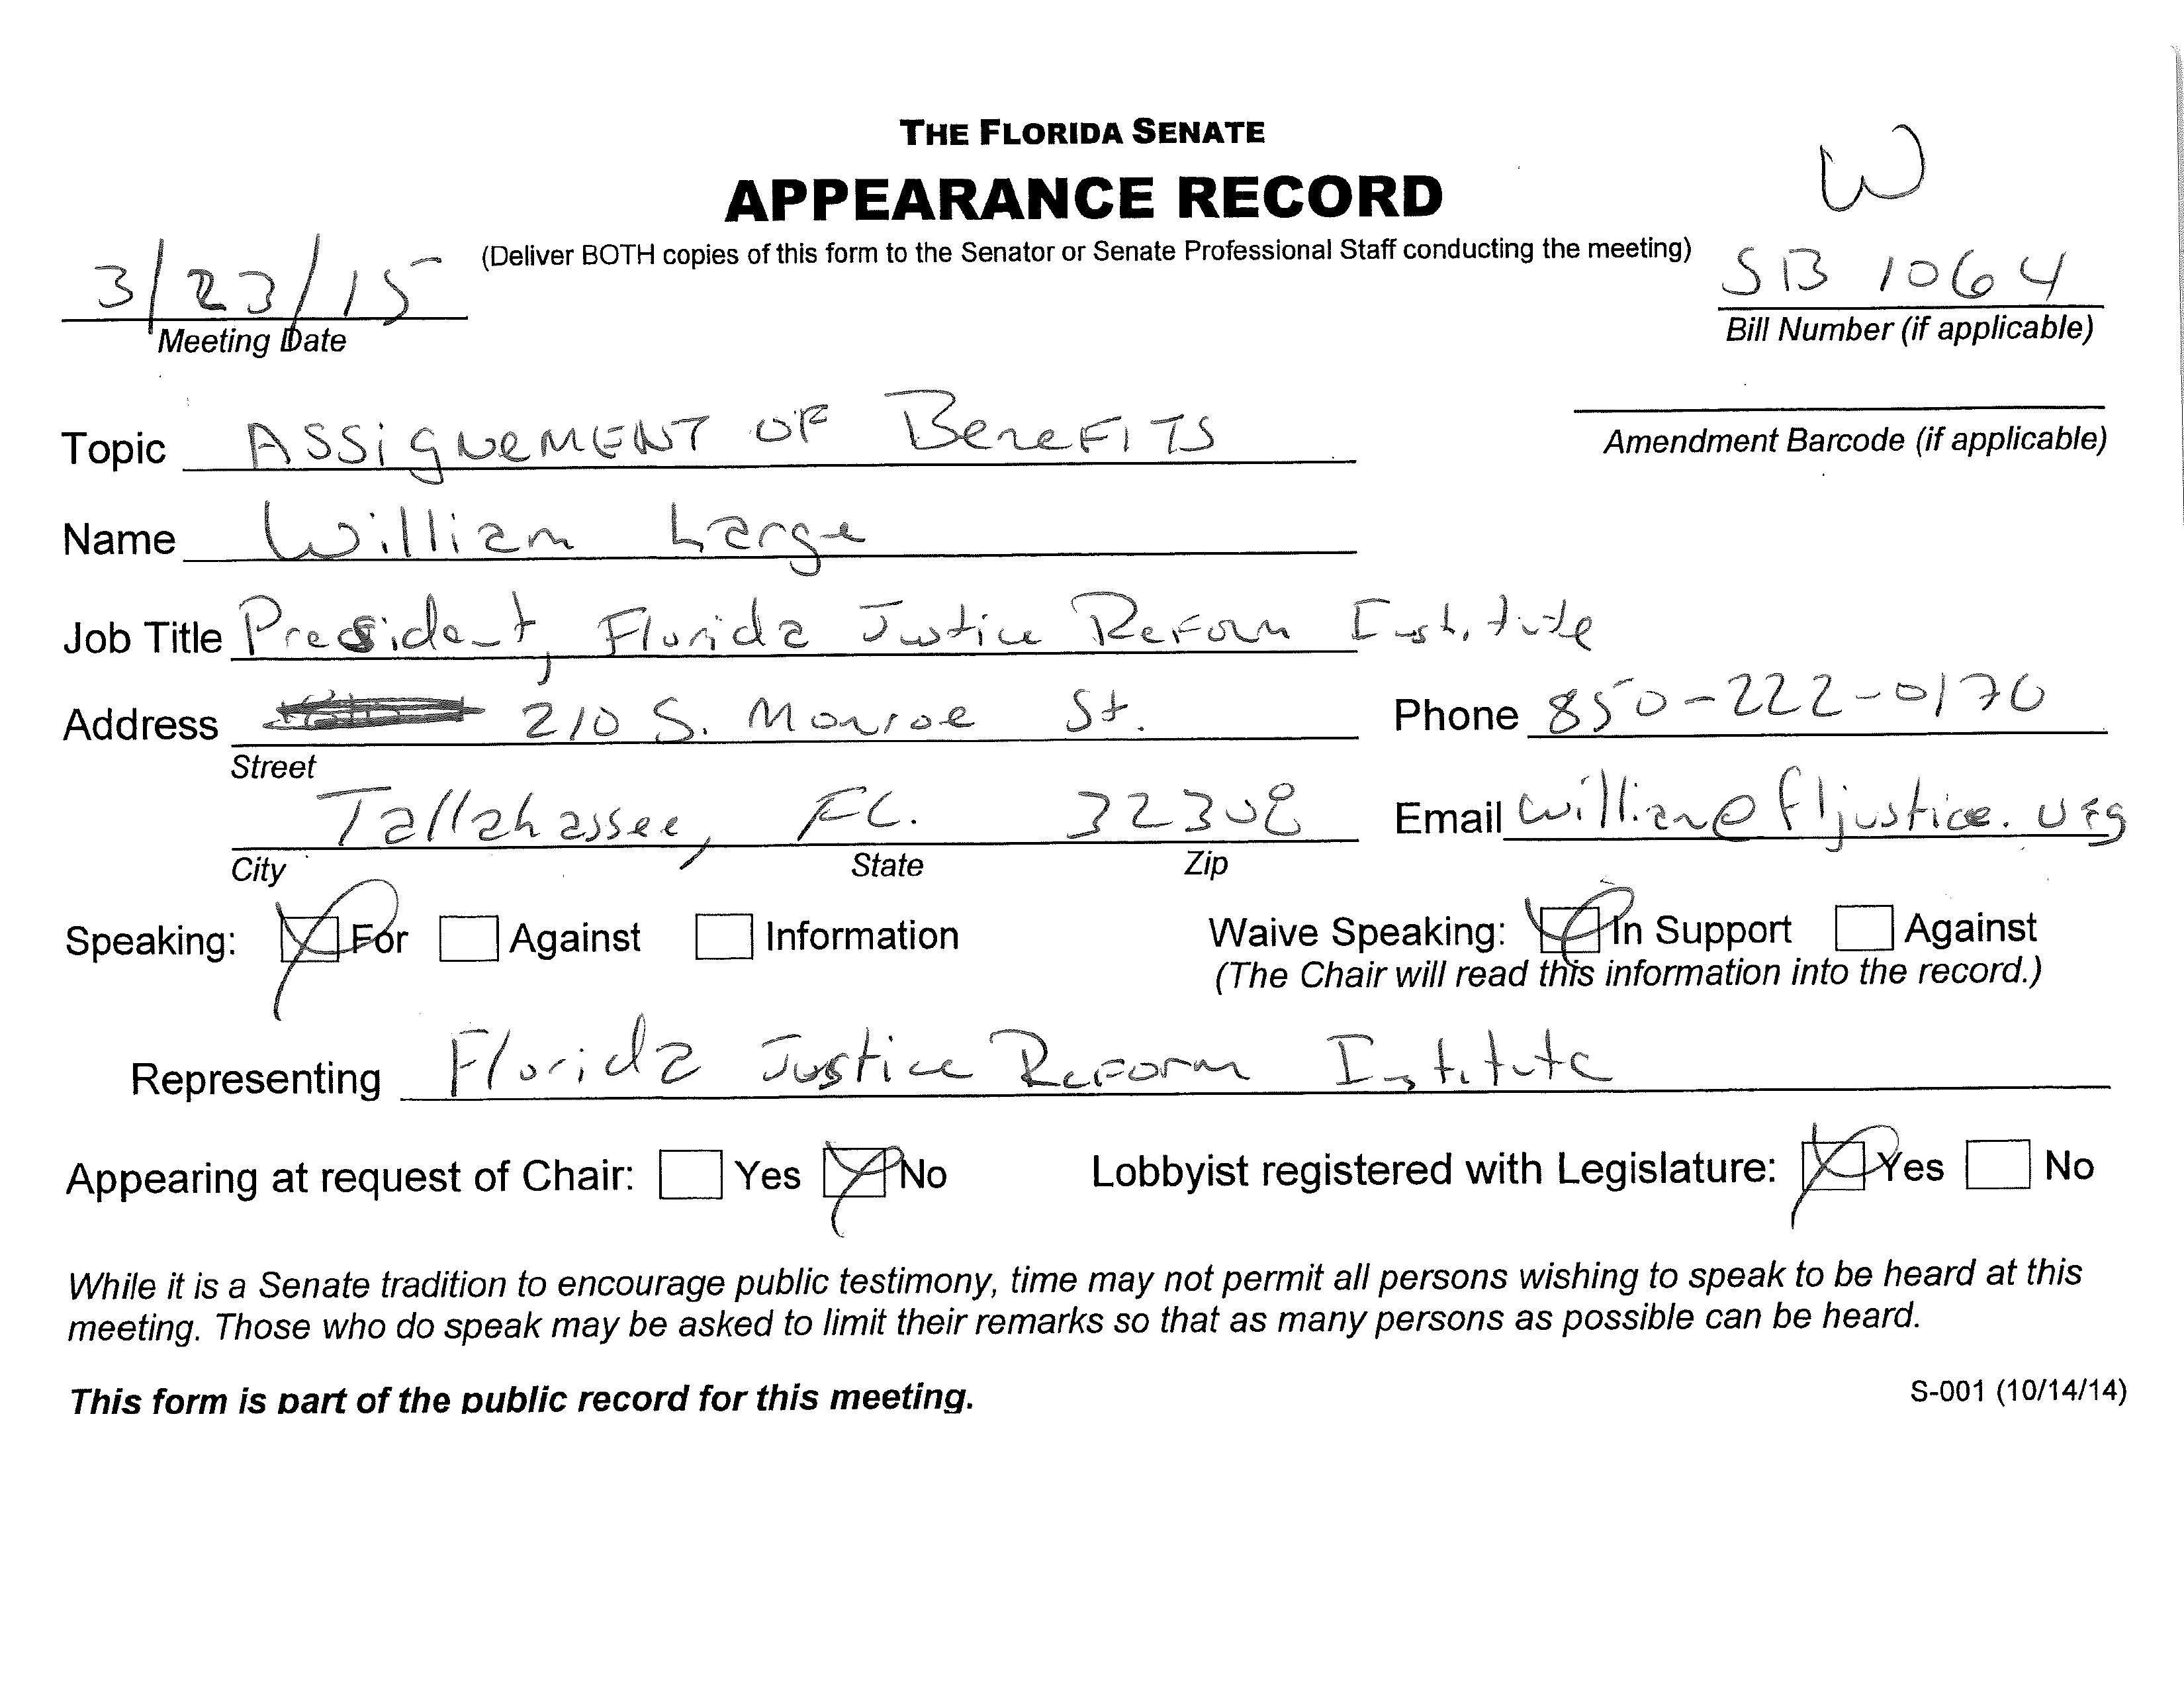 THE FLORIDA SENATE
W
APPEARANCE RECORD
(Deliver BOTH copies of this form to the Senator or Senate Professional Staff conducting the meeting)
3/23/15
SB 1064
Meeting Date
Bill Number (if applicable)
Topic ASSiGNeMENT OF BeneFITS
Amendment Barcode (if applicable)
Name William Large
Job Title President, Florida Justice Reform Institute
Address 210 S. Monroe St. Phone 850-222-0170
Street
Tallahassee, FL. 32308 Email william@fljustice.org
City State Zip
Speaking: For Against Information Waive Speaking: In Support Against
(The Chair will read this information into the record.)
Representing Florida Justice Reform Institute
Appearing at request of Chair: Yes No Lobbyist registered with Legislature: Yes No
While it is a Senate tradition to encourage public testimony, time may not permit all persons wishing to speak to be heard at this
meeting. Those who do speak may be asked to limit their remarks so that as many persons as possible can be heard.
This form is part of the public record for this meeting.
S-001 (10/14/14)